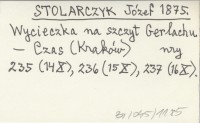 STOLARCZYK Józef 1875.
Wycieczka na szczyt Gerlachu
— Czas (Kraków) nry
235 (14 X), 236 (15 X), 237 (16 X).